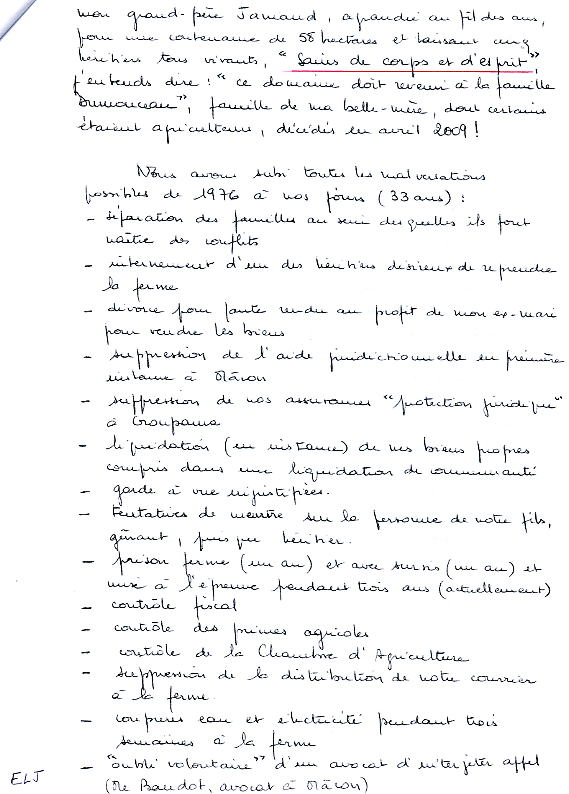 mon grand-père Jamaud, agrandie au fil des ans,
pour une contenance de 58 hectares et laissant cinq
héritiers tous vivants, "Sains de corps et d'esprit",
j'entends dire : "ce domaine doit revenir à la famille
", famille de ma belle-mère, dont certains
étaient agriculteurs, décédés en avril 2009 !
Nous avons subi toutes les malversations
possibles de 1976 à nos jours (33 ans) :
- séparation des familles au sein desquelles ils font
naître des conflits
- internement d'un des héritiers désireux de reprendre
la ferme
- divorce pour faute rendu au profit de mon ex-mari
pour vendre les biens
- suppression de l'aide juridictionnelle en première
instance à Mâcon
- suppression de nos assurances "protection juridique"
à Groupama
- liquidation (en instance) de mes biens propres
compris dans une liquidation de communauté
- garde à vue injustifiées.
- tentatives de meurtre sur la personne de notre fils,
gênant, puisque héritier.
- prison ferme (un an) et avec sursis (un an) et
mise à l'épreuve pendant trois ans (actuellement)
- contrôle fiscal
- contrôle des primes agricoles
- contrôle de la Chambre d'Agriculture
- suppression de la distribution de notre courrier
à la ferme.
- coupures eau et électricité pendant trois
semaines à la ferme
- "oubli volontaire" d'un avocat d'interjeter appel
(Me Baudot, avocat à Mâcon)
ELJ